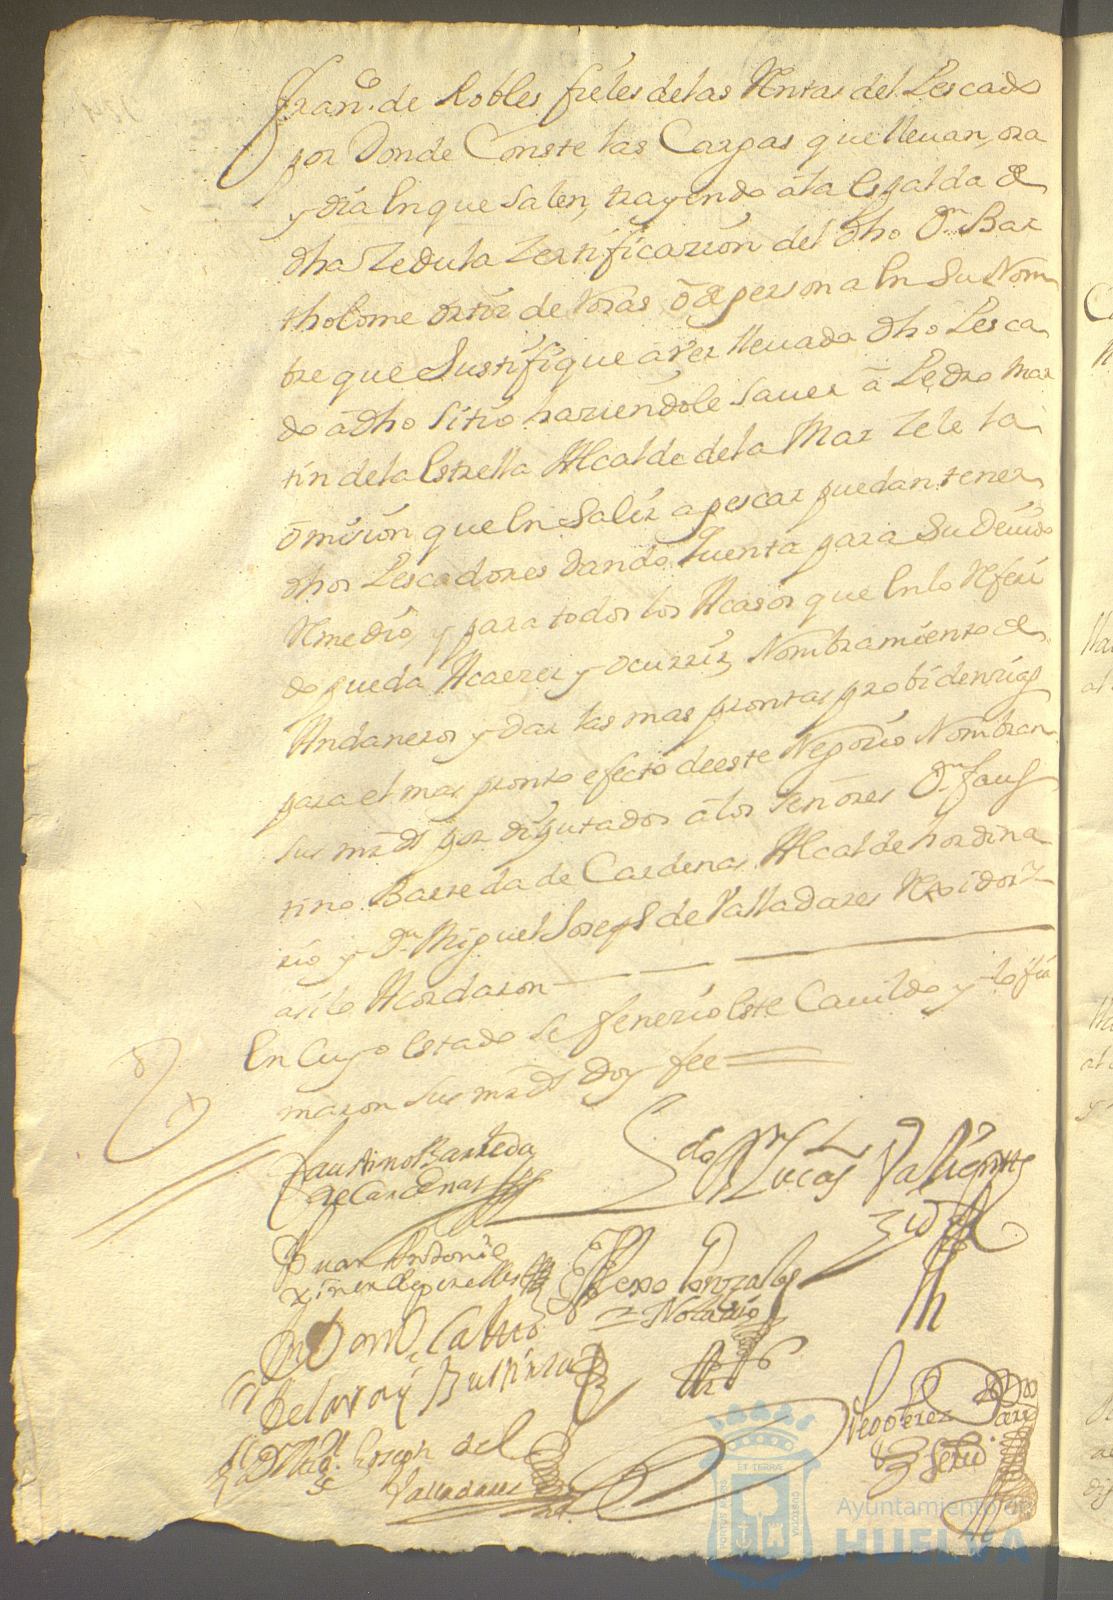 Fran.co de Robles fieles de las Ventas del Pescado
por Donde Conste las Cargas que lleuan, ora
y dia En que Salen, trayendo â la Espalda de
dha Zedula Zertificazion del dho Dn Bar
tholome Ortiz de Voras ô de persona En Su Nom
bre que Justifique aver lleuado dho Pesca
do â dho Sitio haziendole Sauer â Pedro Mar
tin de la Estrella Alcalde de la Mar Zele la
ômision que En Salir a pescar puedan tener
dhos Pescadores Dando quenta para Su Deuido
Remedio, y para todos los Acasos que En lo Referi
do pueda Acaerer y ocurrir, Nombramiento de
Andaneros y Dar las mas prontas probidenzias
para el mas pronto efecto de este Negozio Nombran
Sus mrds por diputados â los Señores Dn faus
tino Barreda de Cardenas Alcalde hordina
rio y Dn Miguel Joseph de Valladares Rexidor
asi lo Acordaron
En Cuyo Estado Se feneçio Este Cauildo y lo fir
maron Sus mrds Doy fee
Faustino Barreda
de Cardenas
Ldo Dn Lucas
Juan Antonio
Gonzales
Notario
Dn Dom.
Joseph de
Valladares
Diego Perez
Ayuntamiento de
HUELVA